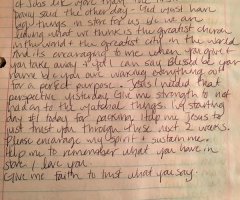 of Jobs like more than the first
Danny said the other day God must have
big things in store for us bc we are
leaving what we think is the greatest church
in the world + the greatest city in the world
And its encouraging to me when you give +
you take away + yet I can say blessed be your
name bc you are working everything out
for a perfect purpose. Jesus I needed that
perspective yesterday. Give me strength to not
hold on to the material things. Im starting
day #1 today for packing. Help me Jesus to
just trust you through these next 2 weeks.
Please encourage my spirit + sustain me.
Help me to remember what you have in
store. I love you.
Give me faith to trust what you say.